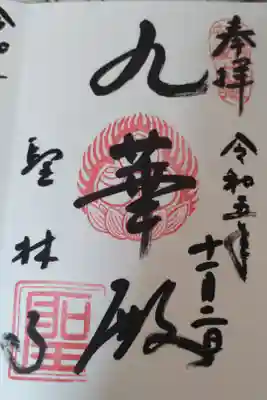 奉拝
令和五年十一月二日
九華殿
聖林寺
令和